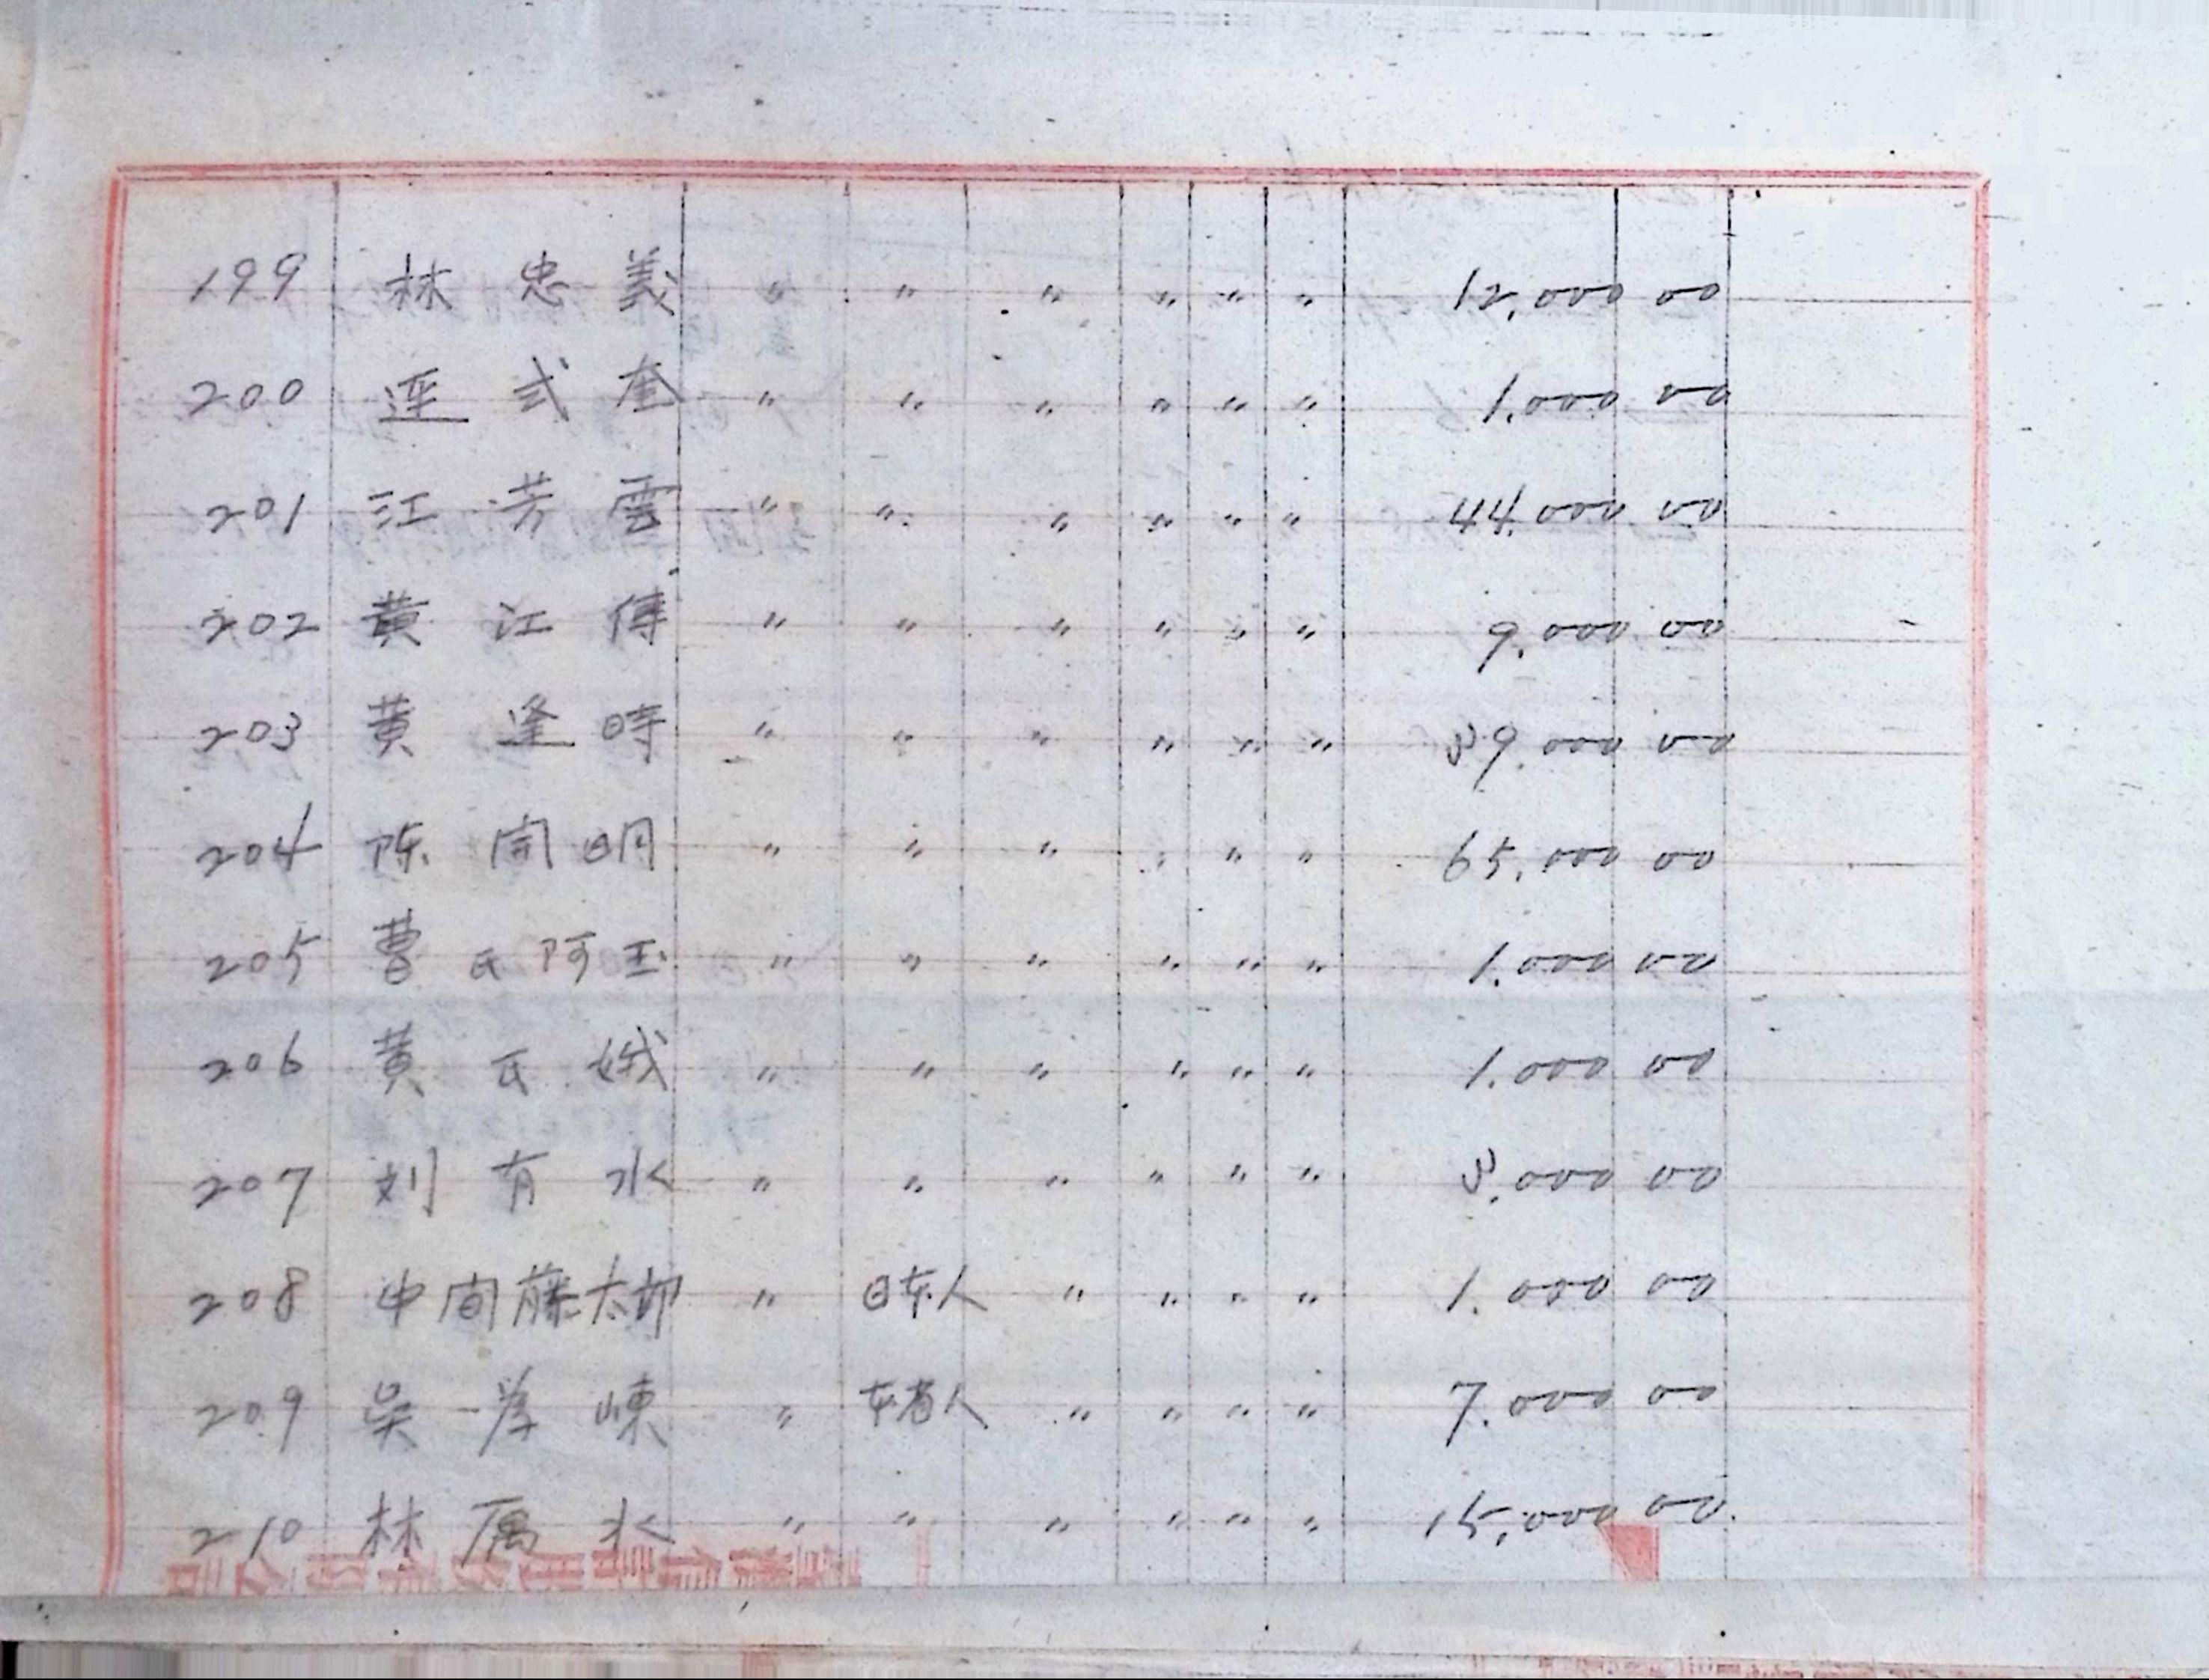 199 林忠義 〃 〃 〃 〃 〃 〃 12,000 00
200 連式奎 〃 〃 〃 〃 〃 〃 1,000 00
201 江芳雲 〃 〃 〃 〃 〃 〃 44,000 00
202 黄江傳 〃 〃 〃 〃 〃 〃 9,000 00
203 黄逢時 〃 〃 〃 〃 〃 〃 39,000 00
204 陈開明 〃 〃 〃 〃 〃 〃 65,000 00
205 曹氏阿玉 〃 〃 〃 〃 〃 〃 1,000 00
206 黄氏娥 〃 〃 〃 〃 〃 〃 1,000 00
207 刘有水 〃 〃 〃 〃 〃 〃 3,000 00
208 中間藤太郎 〃 日本人 〃 〃 〃 〃 1.000 00
209 吳 嵊 〃 本省人 〃 〃 〃 〃 7.000 00
210 林 水 〃 〃 〃 〃 〃 〃 15,000 00